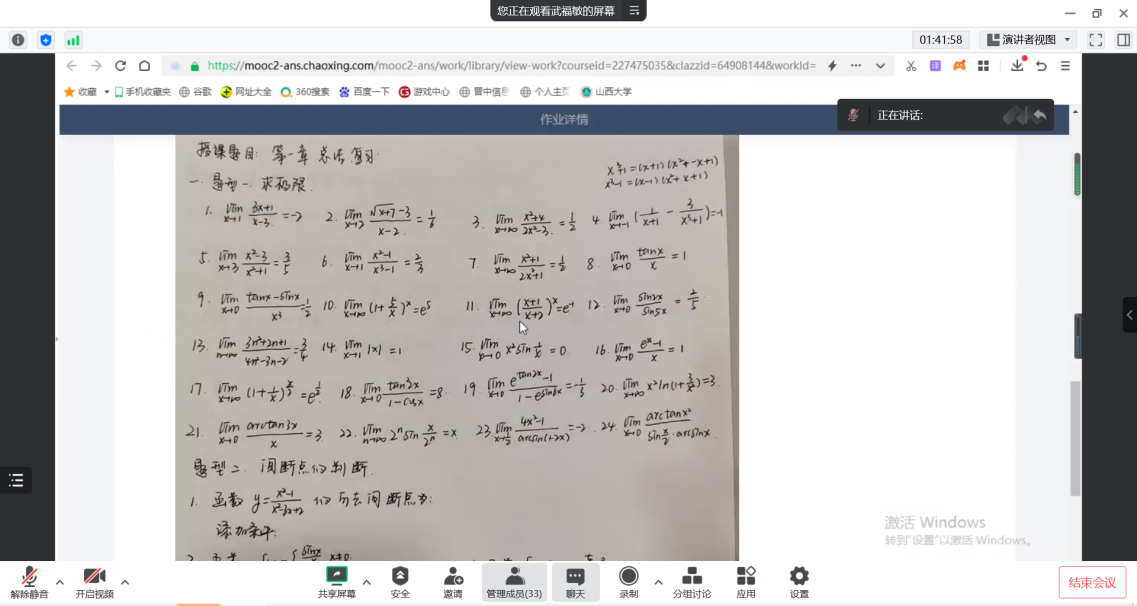 您正在观看武福敏的屏幕
01:41:58 演讲者视图
https://mooc2-ans.chaoxing.com/mooc2-ans/work/library/view-work?courseid=227475035&clazzid=64908144&workId=
收藏 手机收藏夹 谷歌 网址大全 360搜索 百度一下 游戏中心 晋中信息 个人主页 山西大学
正在讲话:
作业详情
授课题目: 第一章 总结复习
x³+1=(x+1)(x²-x+1)
一. 题型一. 求极限.
x³-1=(x-1)(x²+x+1)
1. lim x→1 (3x+1)/(x-3) = -2 2. lim x→2 (√(x+7)-3)/(x-2) = 1/6 3. lim x→∞ (x²+4)/(2x²-3) = 1/2 4. lim x→-1 (1/(x+1) - 3/(x³+1)) = -1
5. lim x→3 (x²-3)/(x²+1) = 3/5 6. lim x→1 (x²-1)/(x³-1) = 2/3 7. lim x→∞ (x²+1)/(2x²+1) = 1/2 8. lim x→0 tanx/x = 1
9. lim x→0 (tanx-sinx)/x³ = 1/2 10. lim x→∞ (1+5/x)^x = e⁵ 11. lim x→∞ ((x+1)/(x+2))^x = e⁻¹ 12. lim x→0 sin2x/sin5x = 2/5
13. lim n→∞ (3n²+2n+1)/(4n²-3n-2) = 3/4 14. lim x→1 |x| = 1 15. lim x→0 x²sin 1/x = 0. 16. lim x→0 (eˣ-1)/x = 1
17. lim x→∞ (1+1/x)^(x/2) = e^(1/2) 18. lim x→0 /(1-cosx) = 8. 19. lim x→0 (e^(tan2x)-1)/(1-e^(sin6x)) = -1/3 20. lim x→∞ x²ln(1+3/x²) = 3.
21. lim x→0 arctan3x/x = 3. 22. lim n→∞ 2ⁿ sin x/2ⁿ = x 23. lim x→1/2 (4x²-1)/arcsin(1-2x) = -2 24. lim x→0 arctanx²/(sin x/2 · arcsinx)
题型二. 间断点的判断.
1. 函数 y = (x²-1)/(x²-3x+2) 的可去间断点为:
添加条件:
激活 Windows
转到"设置"以激活 Windows。
解除静音 开启视频 共享屏幕 安全 邀请 管理成员(33) 聊天 录制 分组讨论 应用 设置 结束会议